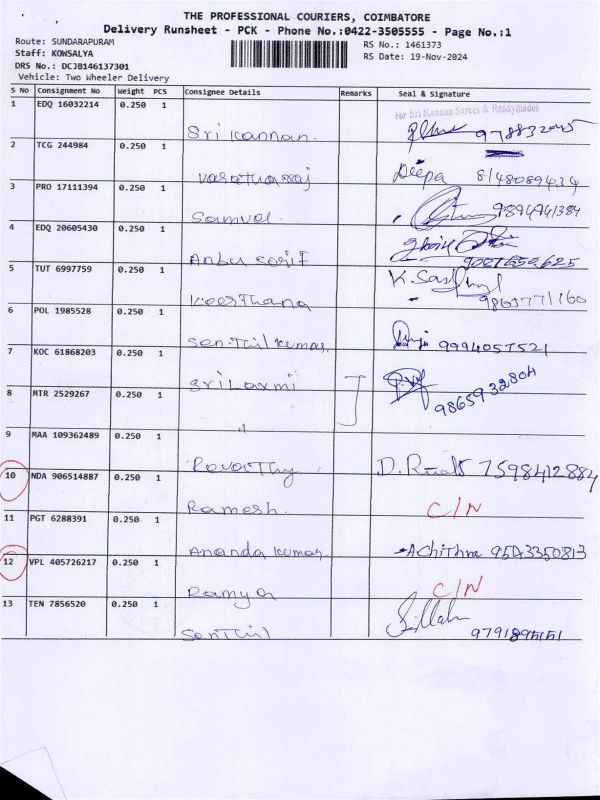 THE PROFESSIONAL COURIERS, COIMBATORE
Delivery Runsheet - PCK - Phone No.:0422-3505555 - Page No.:1
Route: SUNDARAPURAM
RS No.: 1461373
Staff: KOWSALYA
RS Date: 19-Nov-2024
DRS No.: DCJB146137301
Vehicle: Two Wheeler Delivery
S No Consignment No Weight PCS Consignee Details Remarks Seal & Signature
1 EDQ 16032214 0.250 1 Sri Kannan. For Sri Kannan Sarees & Readymades
2 TCG 244984 0.250 1 Varatharaj Deepa 8148089434
3 PRO 17111394 0.250 1 Samvel. 9894941384
4 EDQ 20605430 0.250 1
5 TUT 6997759 0.250 1 Keerthana
6 POL 1985528 0.250 1 Senthil kumar 9994057521
7 KOC 61868203 0.250 1 Sri Laxmi
8 MTR 2529267 0.250 1 " 9865932804
9 MAA 109362489 0.250 1 Revathy 7598412884
10 NDA 906514887 0.250 1 Ramesh. C/N
11 PGT 6288391 0.250 1 Ananda kumar AChithra 9543350813
12 VPL 405726217 0.250 1 Ramya C/N
13 TEN 7856520 0.250 1 Senthil